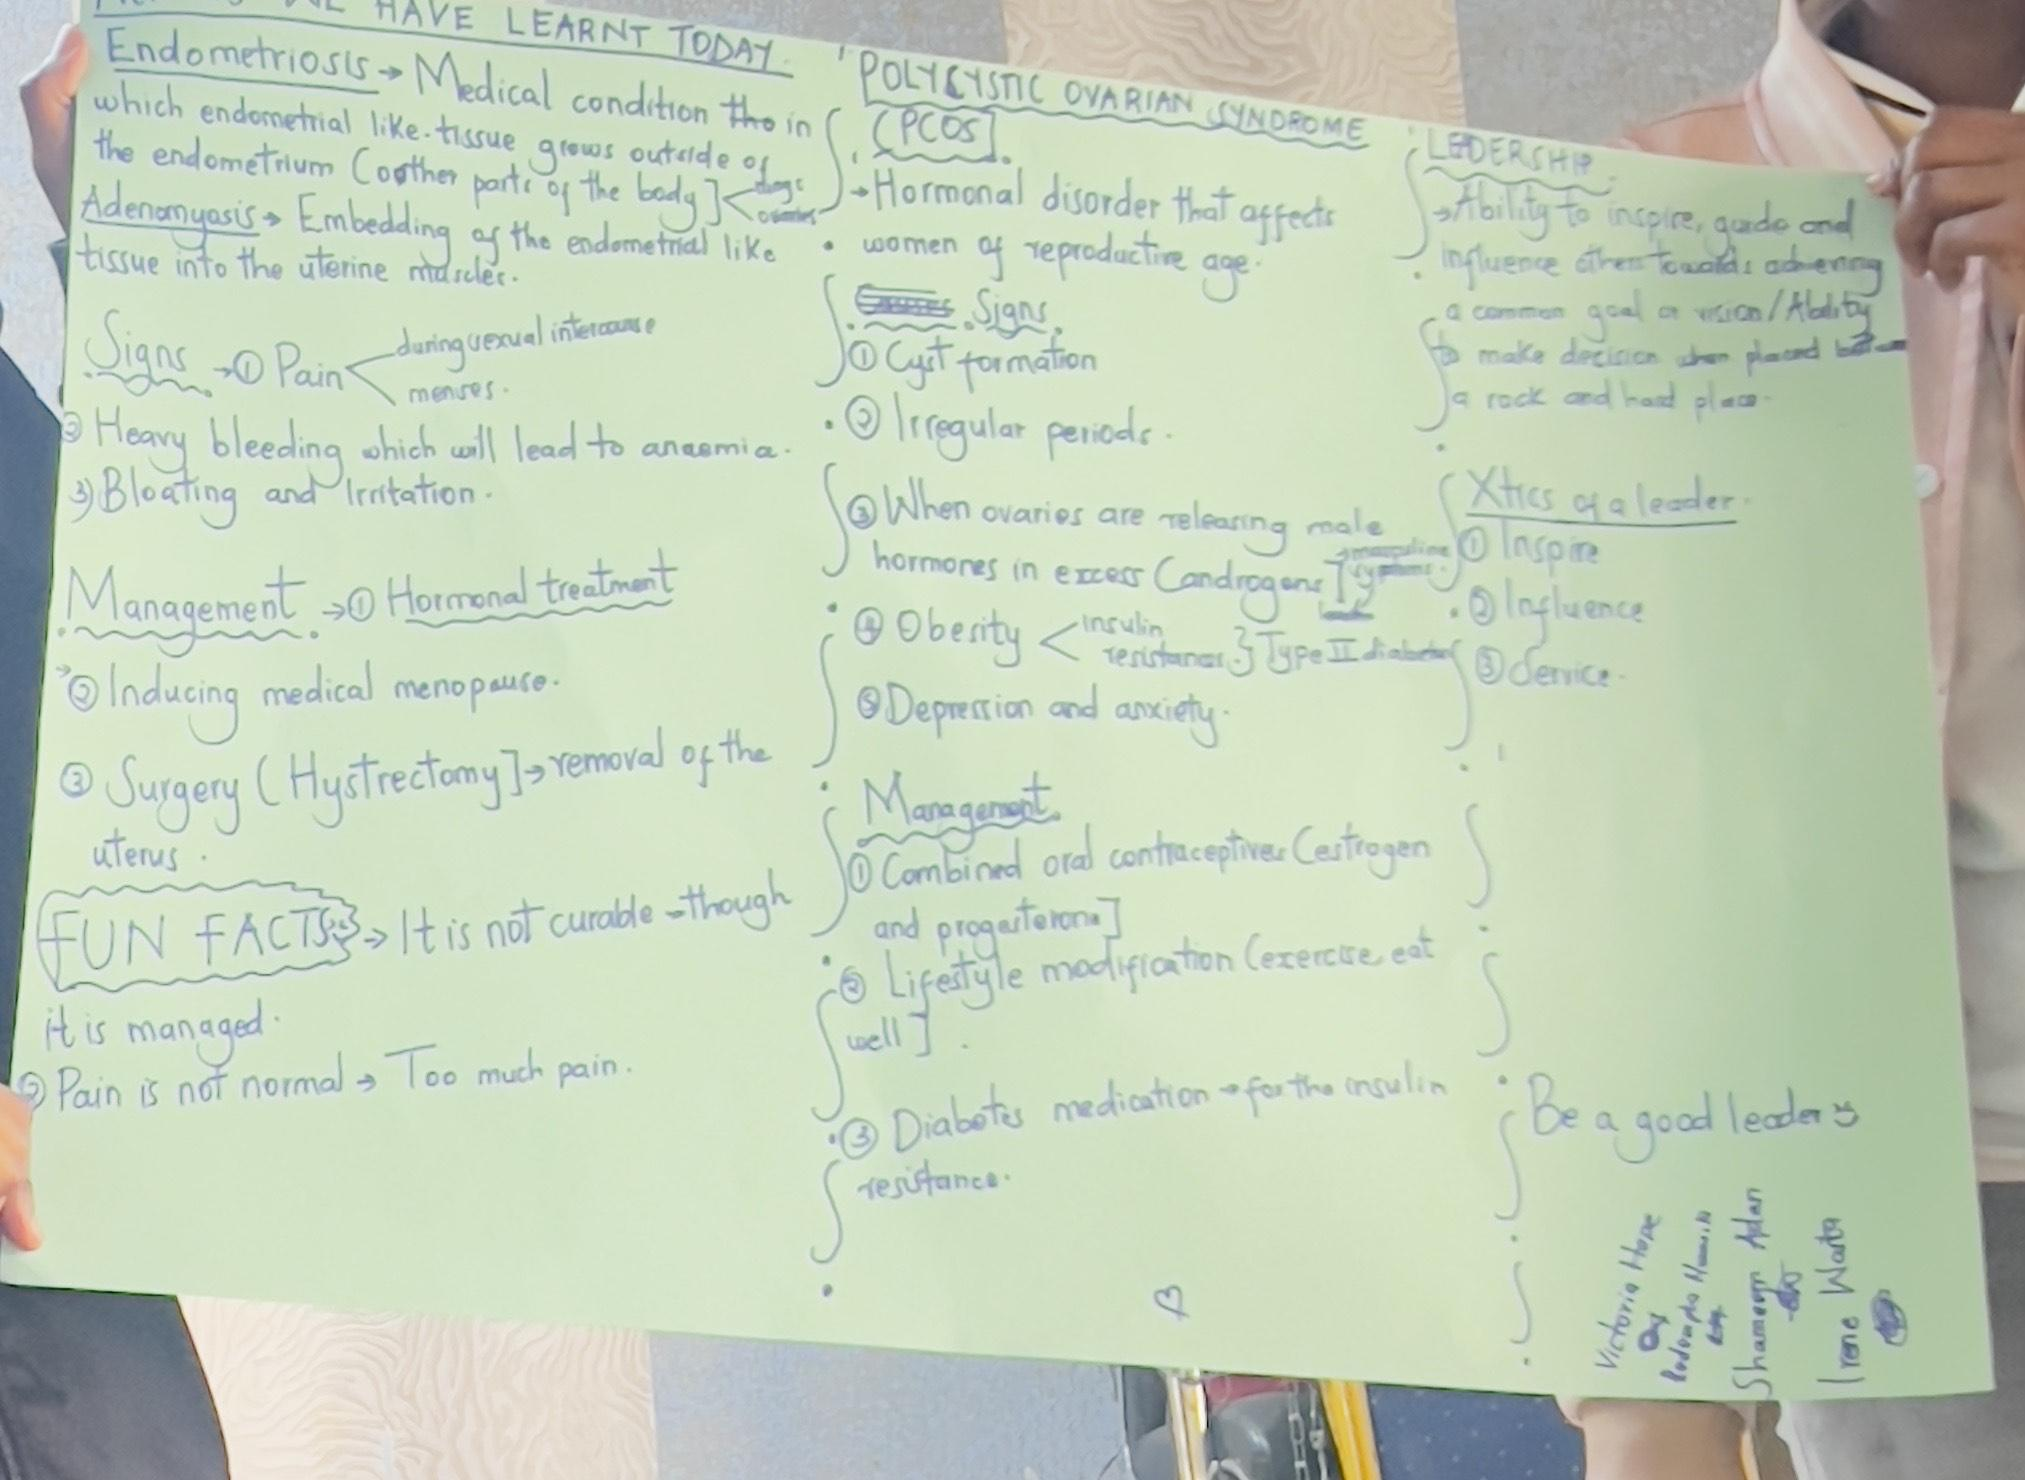 WE HAVE LEARNT TODAY.
Endometriosis → Medical condition in
which endometrial like tissue grows outside of
the endometrium (other parts of the body] < lungs
ovaries
Adenomyosis → Embedding of the endometrial like
tissue into the uterine muscles.
Signs → ① Pain < during sexual intercourse
menses.
② Heavy bleeding which will lead to anaemia.
3) Bloating and Irritation.
Management → ① Hormonal treatment
② Inducing medical menopause.
③ Surgery (Hystrectomy] → removal of the
uterus.
FUN FACTS → It is not curable though
it is managed.
② Pain is not normal → Too much pain.
POLYCYSTIC OVARIAN SYNDROME
(PCOS].
→ Hormonal disorder that affects
women of reproductive age.
Signs
① Cyst formation
② Irregular periods.
③ When ovaries are releasing male
hormones in excess (androgens] → masculine
④ Obesity < insulin
resistance } Type II diabetes
⑤ Depression and anxiety.
Management
① Combined oral contraceptives (estrogen
and progesterone]
② Lifestyle modification (exercise, eat
well].
③ Diabetes medication → for the insulin
resistance.
LEDERSHIP
→ Ability to inspire, guide and
influence others towards achieving
a common goal or vision/Ability
to make decision when placed
a rock and hard place.
Xtics of a leader.
① Inspire
② Influence
③ Service.
Be a good leader
Victoria Hope
Shameem Adan
Irene